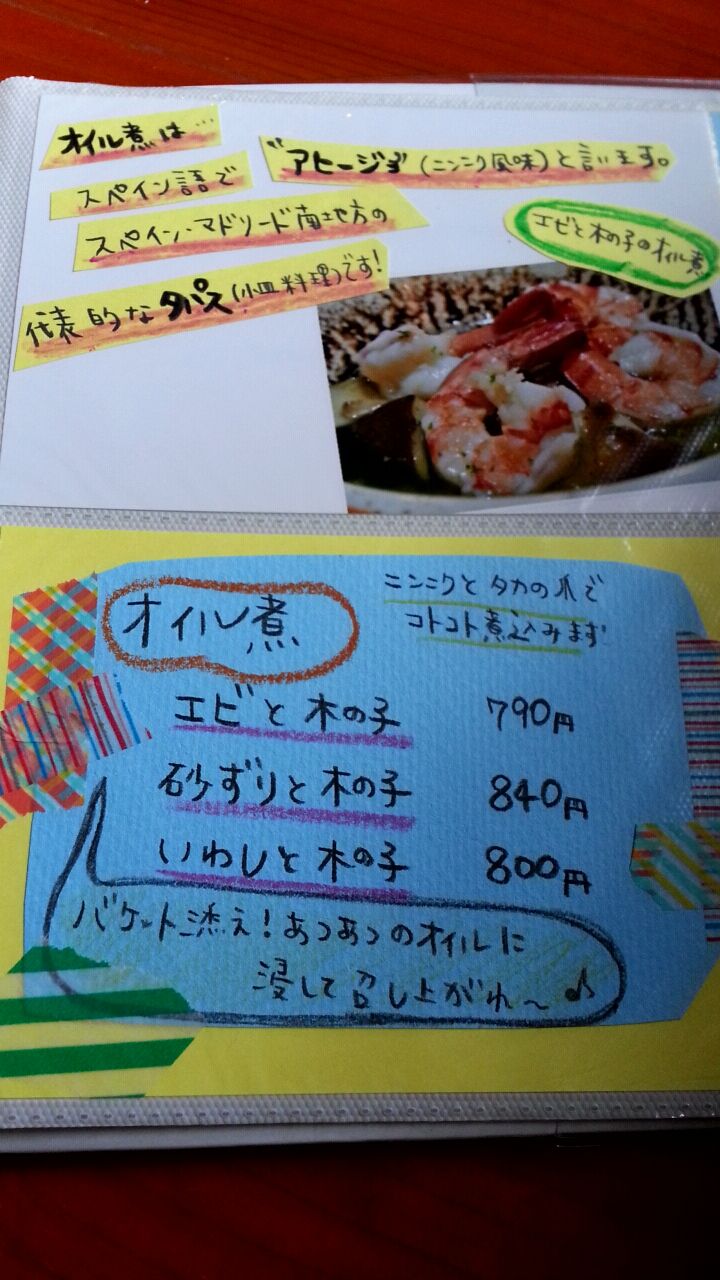 オイル煮は…
スペイン語で
"アヒージョ"(ニンニク風味)と言います。
スペイン・マドリード南地方の
代表的なタパス(小皿料理)です!
エビと木の子のオイル煮
オイル煮
ニンニクとタカの爪で
コトコト煮込みます
エビと木の子 790円
砂ずりと木の子 840円
いわしと木の子 800円
バケット添え!あつあつのオイルに
浸して召し上がれ〜♪